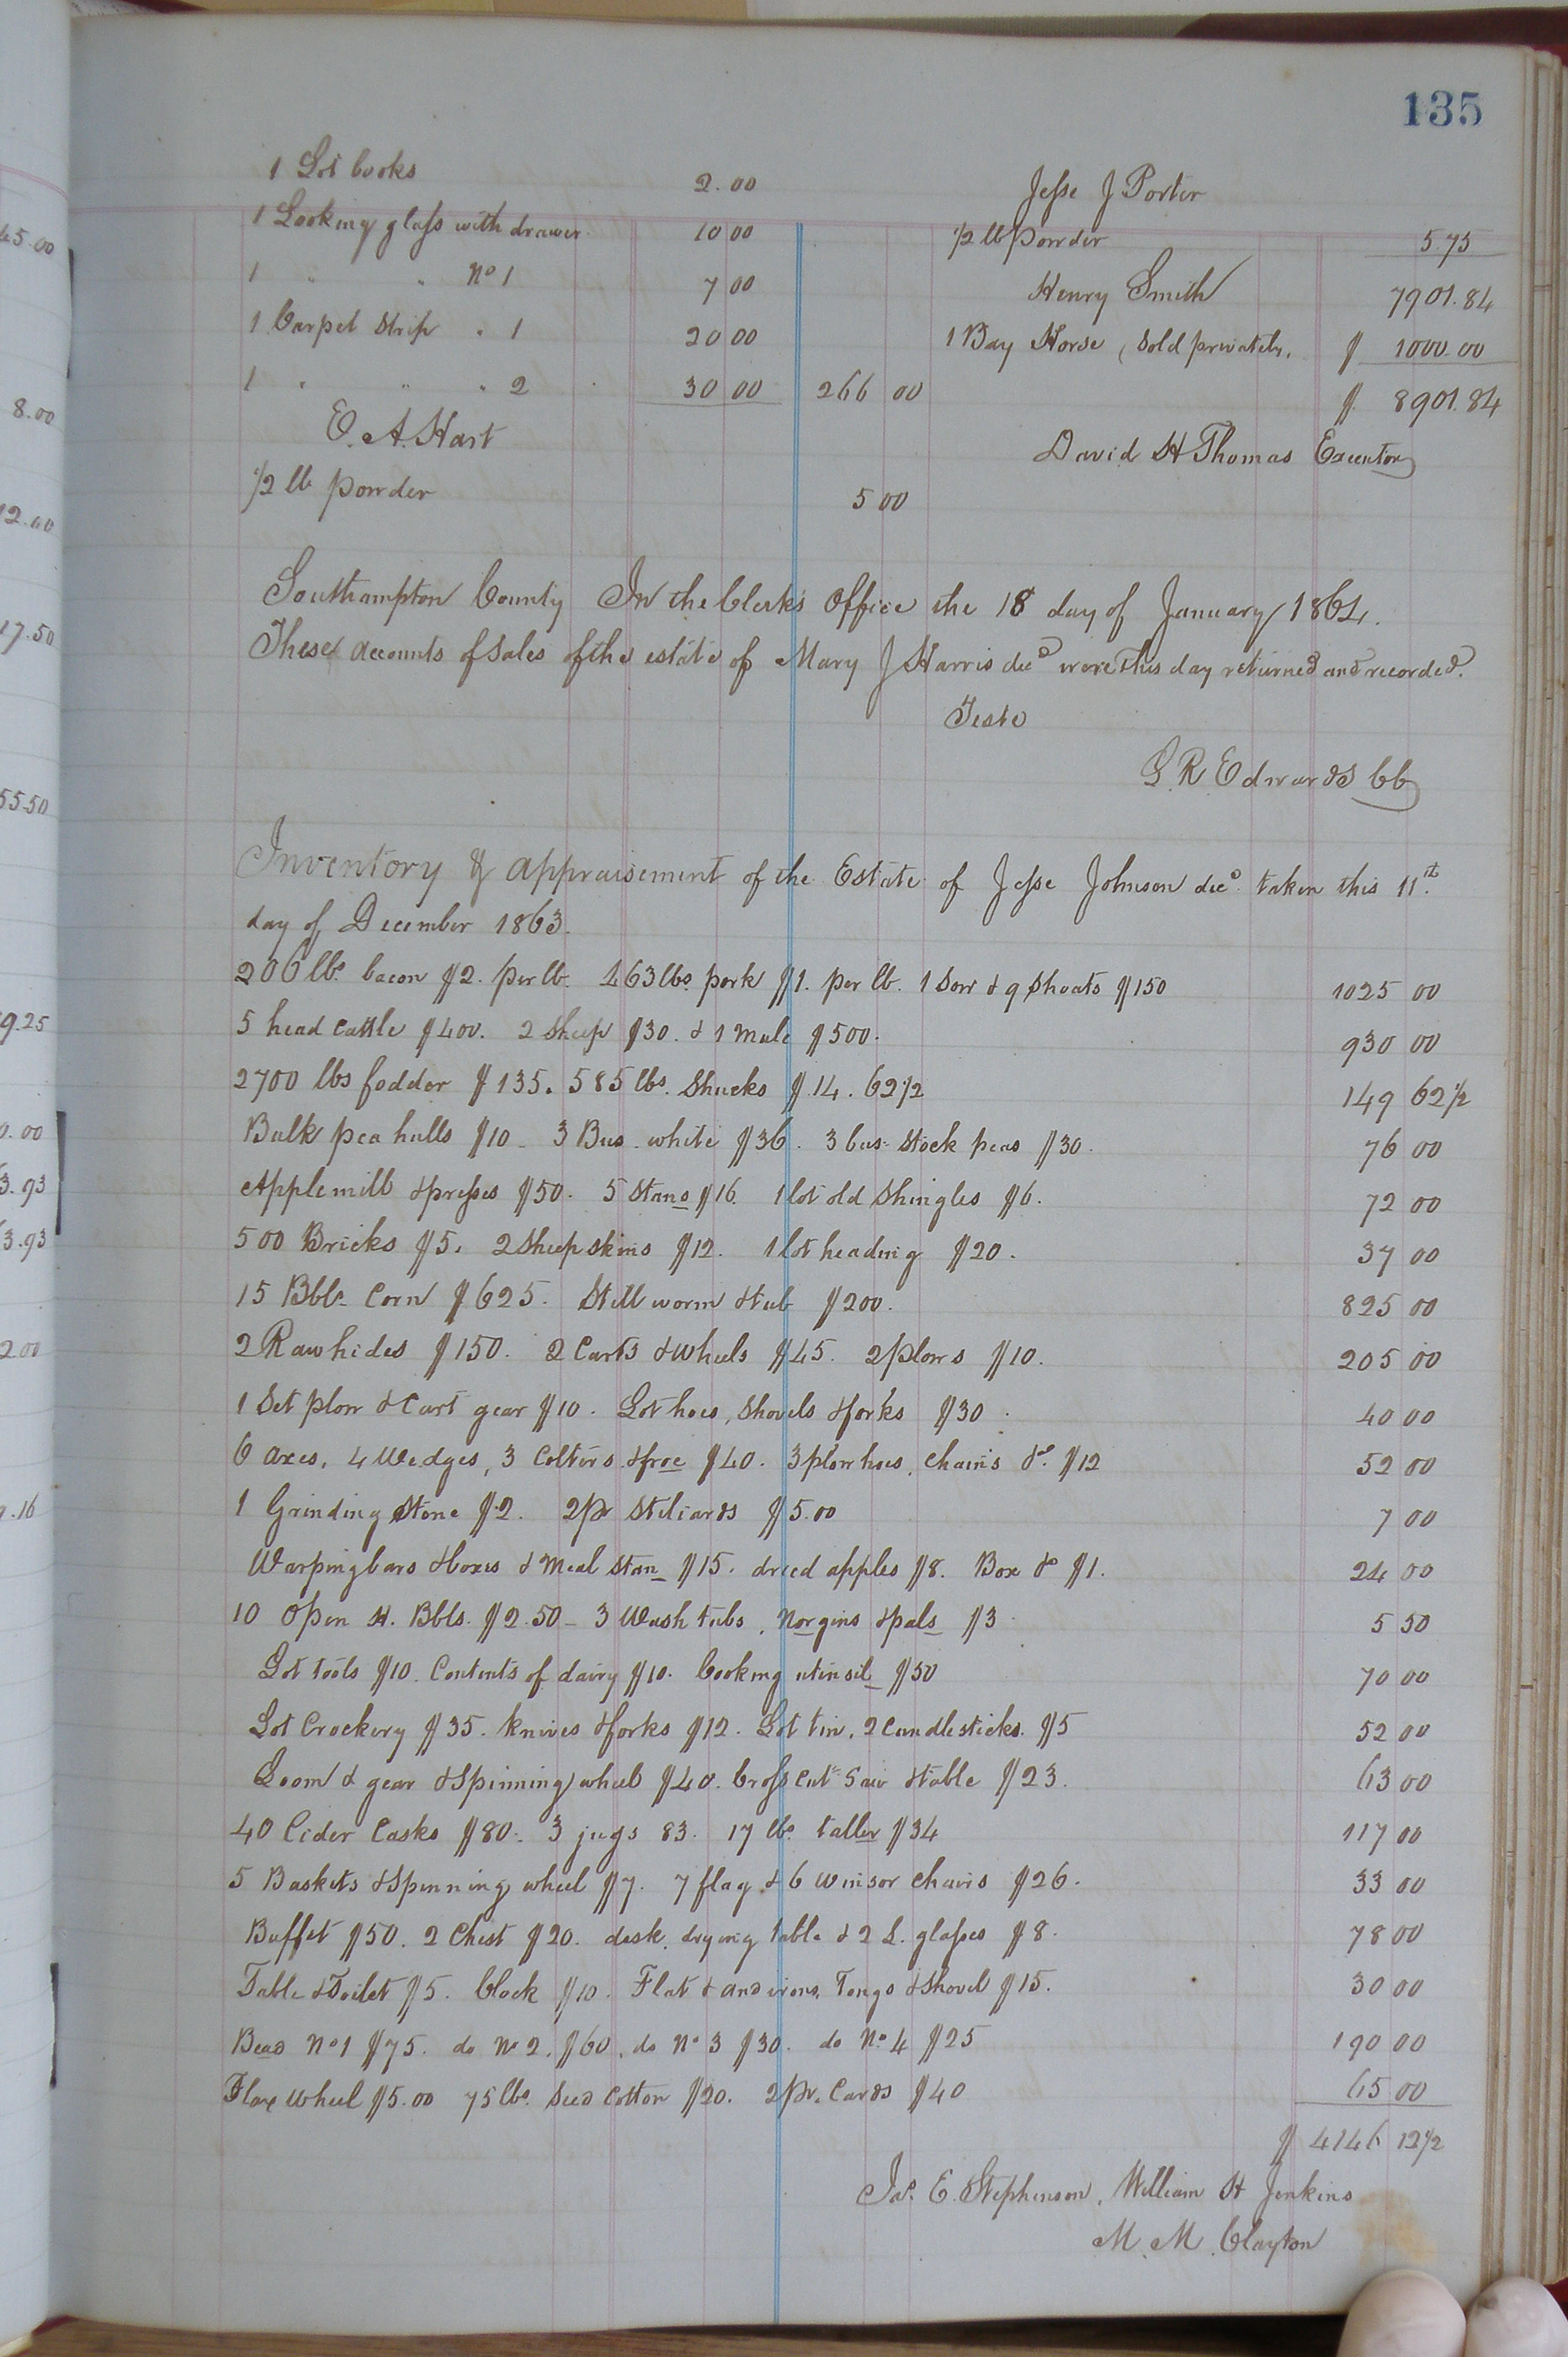 135
1 Lot books 2.00
1 Looking glass with drawer 10 00
1 " " No 1 7 00
1 Carpet Strip " 1 20 00
1 " " " 2 30 00 266 00
E. A. Hart
1/2 lb powder 5 00
Jesse J Porter
1/2 lb powder 5.75
Henry Smith 7901.84
1 Bay Horse (Sold privately. $ 1000.00
$ 8901.84
David H Thomas Executor
Southampton County In the Clerks Office the 18 day of January 1864.
These accounts of Sales of the estate of Mary J Harris decd were this day returned and recorded.
Teste
L R Edwards CC
Inventory & appraisement of the Estate of Jesse Johnson decd taken this 11th
day of December 1863.
200 lbs bacon $2. per lb. 463 lbs pork $1. per lb. 1 Sow & 9 Shoats $150 1025 00
5 head Cattle $400. 2 Sheep $30. & 1 Mule $500. 930 00
2700 lbs fodder $135. 585 lbs. Shucks $14.62 1/2 149 62 1/2
Bulk pea hulls $10 - 3 Bus. white $36. 3 bus. Stock peas $30. 76 00
Applemill & presses $50. 5 Stans $16 1 lot old Shingles $6. 72 00
500 Bricks $5. 2 Sheep skins $12. 1 lot heading $20. 37 00
15 Bbls Corn $625. Still worm & tub $200. 825 00
2 Raw hides $150. 2 Carts & Wheels $45. 2 plows $10. 205 00
1 Set plow & Cart gear $10. Lot hoes, Shovels & forks $30. 40 00
6 axes, 4 Wedges, 3 Colters & froe $40. 3 plow hoes, chains &c. $12 52 00
1 Grinding Stone $2. 2 pr Stiliards $5.00 7 00
Warpingbars & boxes & Meal Stan $15. dried apples $8. Box &c $1. 24 00
10 Open H. Bbls. $2.50 - 3 Wash tubs, Norgins & pals $3 5 50
Lot tools $10. Contents of dairy $10. Cooking utinsil $50 70 00
Lot Crockery $35. Knives & forks $12. Lot tin, 2 Candlesticks. $5 52 00
Loom & gear & Spinning wheel $40. Cross Cut Saw & table $23. 63 00
40 Cider Casks $80. 3 jugs $3. 17 lbs taller $34 117 00
5 Baskets & Spinning wheel $7. 7 flag & 6 Winsor Chairs $26. 33 00
Buffet $50. 2 Chest $20. desk, drying table & 2 L. glasses $8. 78 00
Table & Toilet $5. Clock $10. Flat & andirons, Tongs & Shovel $15. 30 00
Bead No 1 $75. do No 2. $60. do No 3 $30. do No. 4 $25 190 00
Flax Wheel $5.00 75 lbs. Seed Cotton $20. 2 pr. Cards $40 65 00
$ 4146 12 1/2
Jas. E. Stephenson, William H Jenkins
M. M. Clayton
45.00
8.00
12.00
17.50
55.50
9.25
0.00
3.93
3.93
2.00
.16